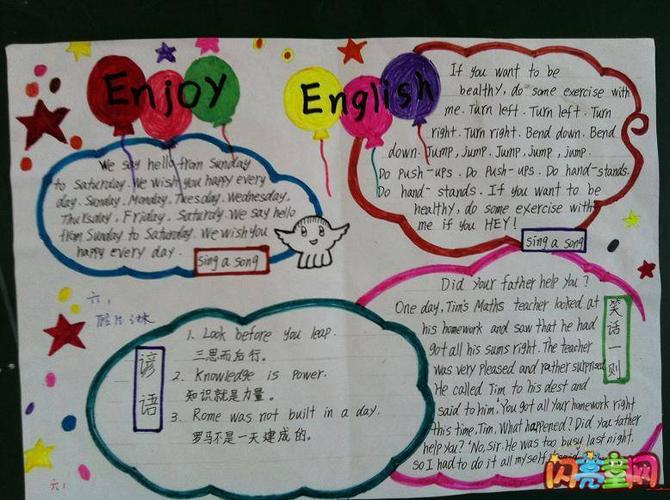 Enjoy English
We say hello from Sunday
to Saturday. We wish you happy every
day. Sunday. Monday. Tuesday. Wednesday.
Thursday. Friday. Saturdy. We say hello
from Sunday to Saturday. We wish you
happy every day.
sing a song
If you want to be
healthy, do some exercise with
me. Turn left. Turn left. Turn
right. Turn right. Bend down. Bend
down. Jump, jump. Jump, jump, jump.
Do Push-ups. Do Push-ups. Do hand-stands.
Do hand-stands. If you want to be
healthy, do some exercise with
me if you HEY!
sing a song
六、
谚语
1. Look before you leap.
三思而后行。
2. Knowledge is power.
知识就是力量。
3. Rome was not built in a day.
罗马不是一天建成的。
六、
Did your father help you?
One day, Tim's Maths teacher looked at
his homework and saw that he had
got all his sums right. The teacher
was very pleased and rather surprised
He called Tim to his dest and
said to him, You got all your homework right
this time, Tim. What happened? Did you father
help you? "No, sir. He was too busy last night,
so I had to do it all myself
笑话一则
闪亮童网